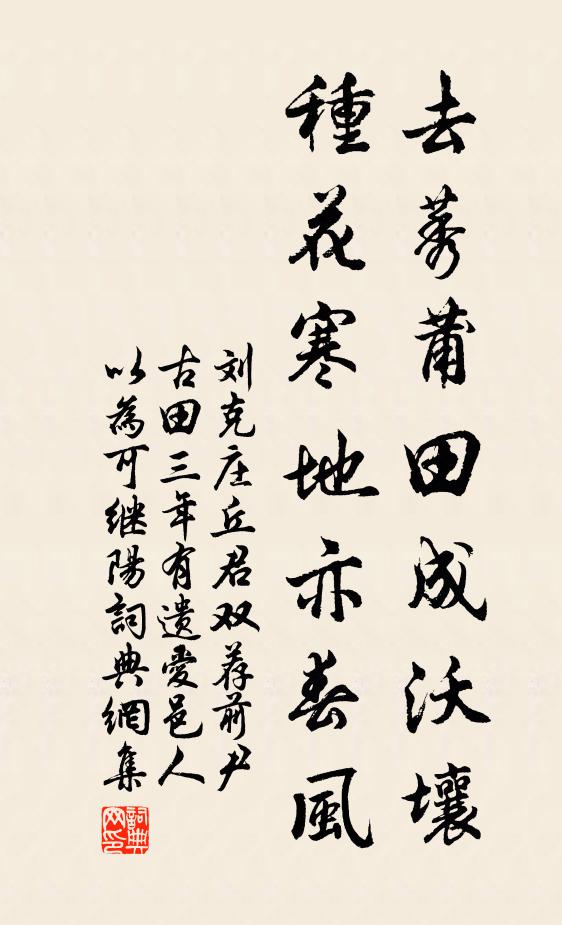 去莠莆田成沃壤
種花寒地亦春風
刘克庄丘君双荐前尹
古田三年有遗愛邑人
以為可继陽詞典網集
詞典
网印